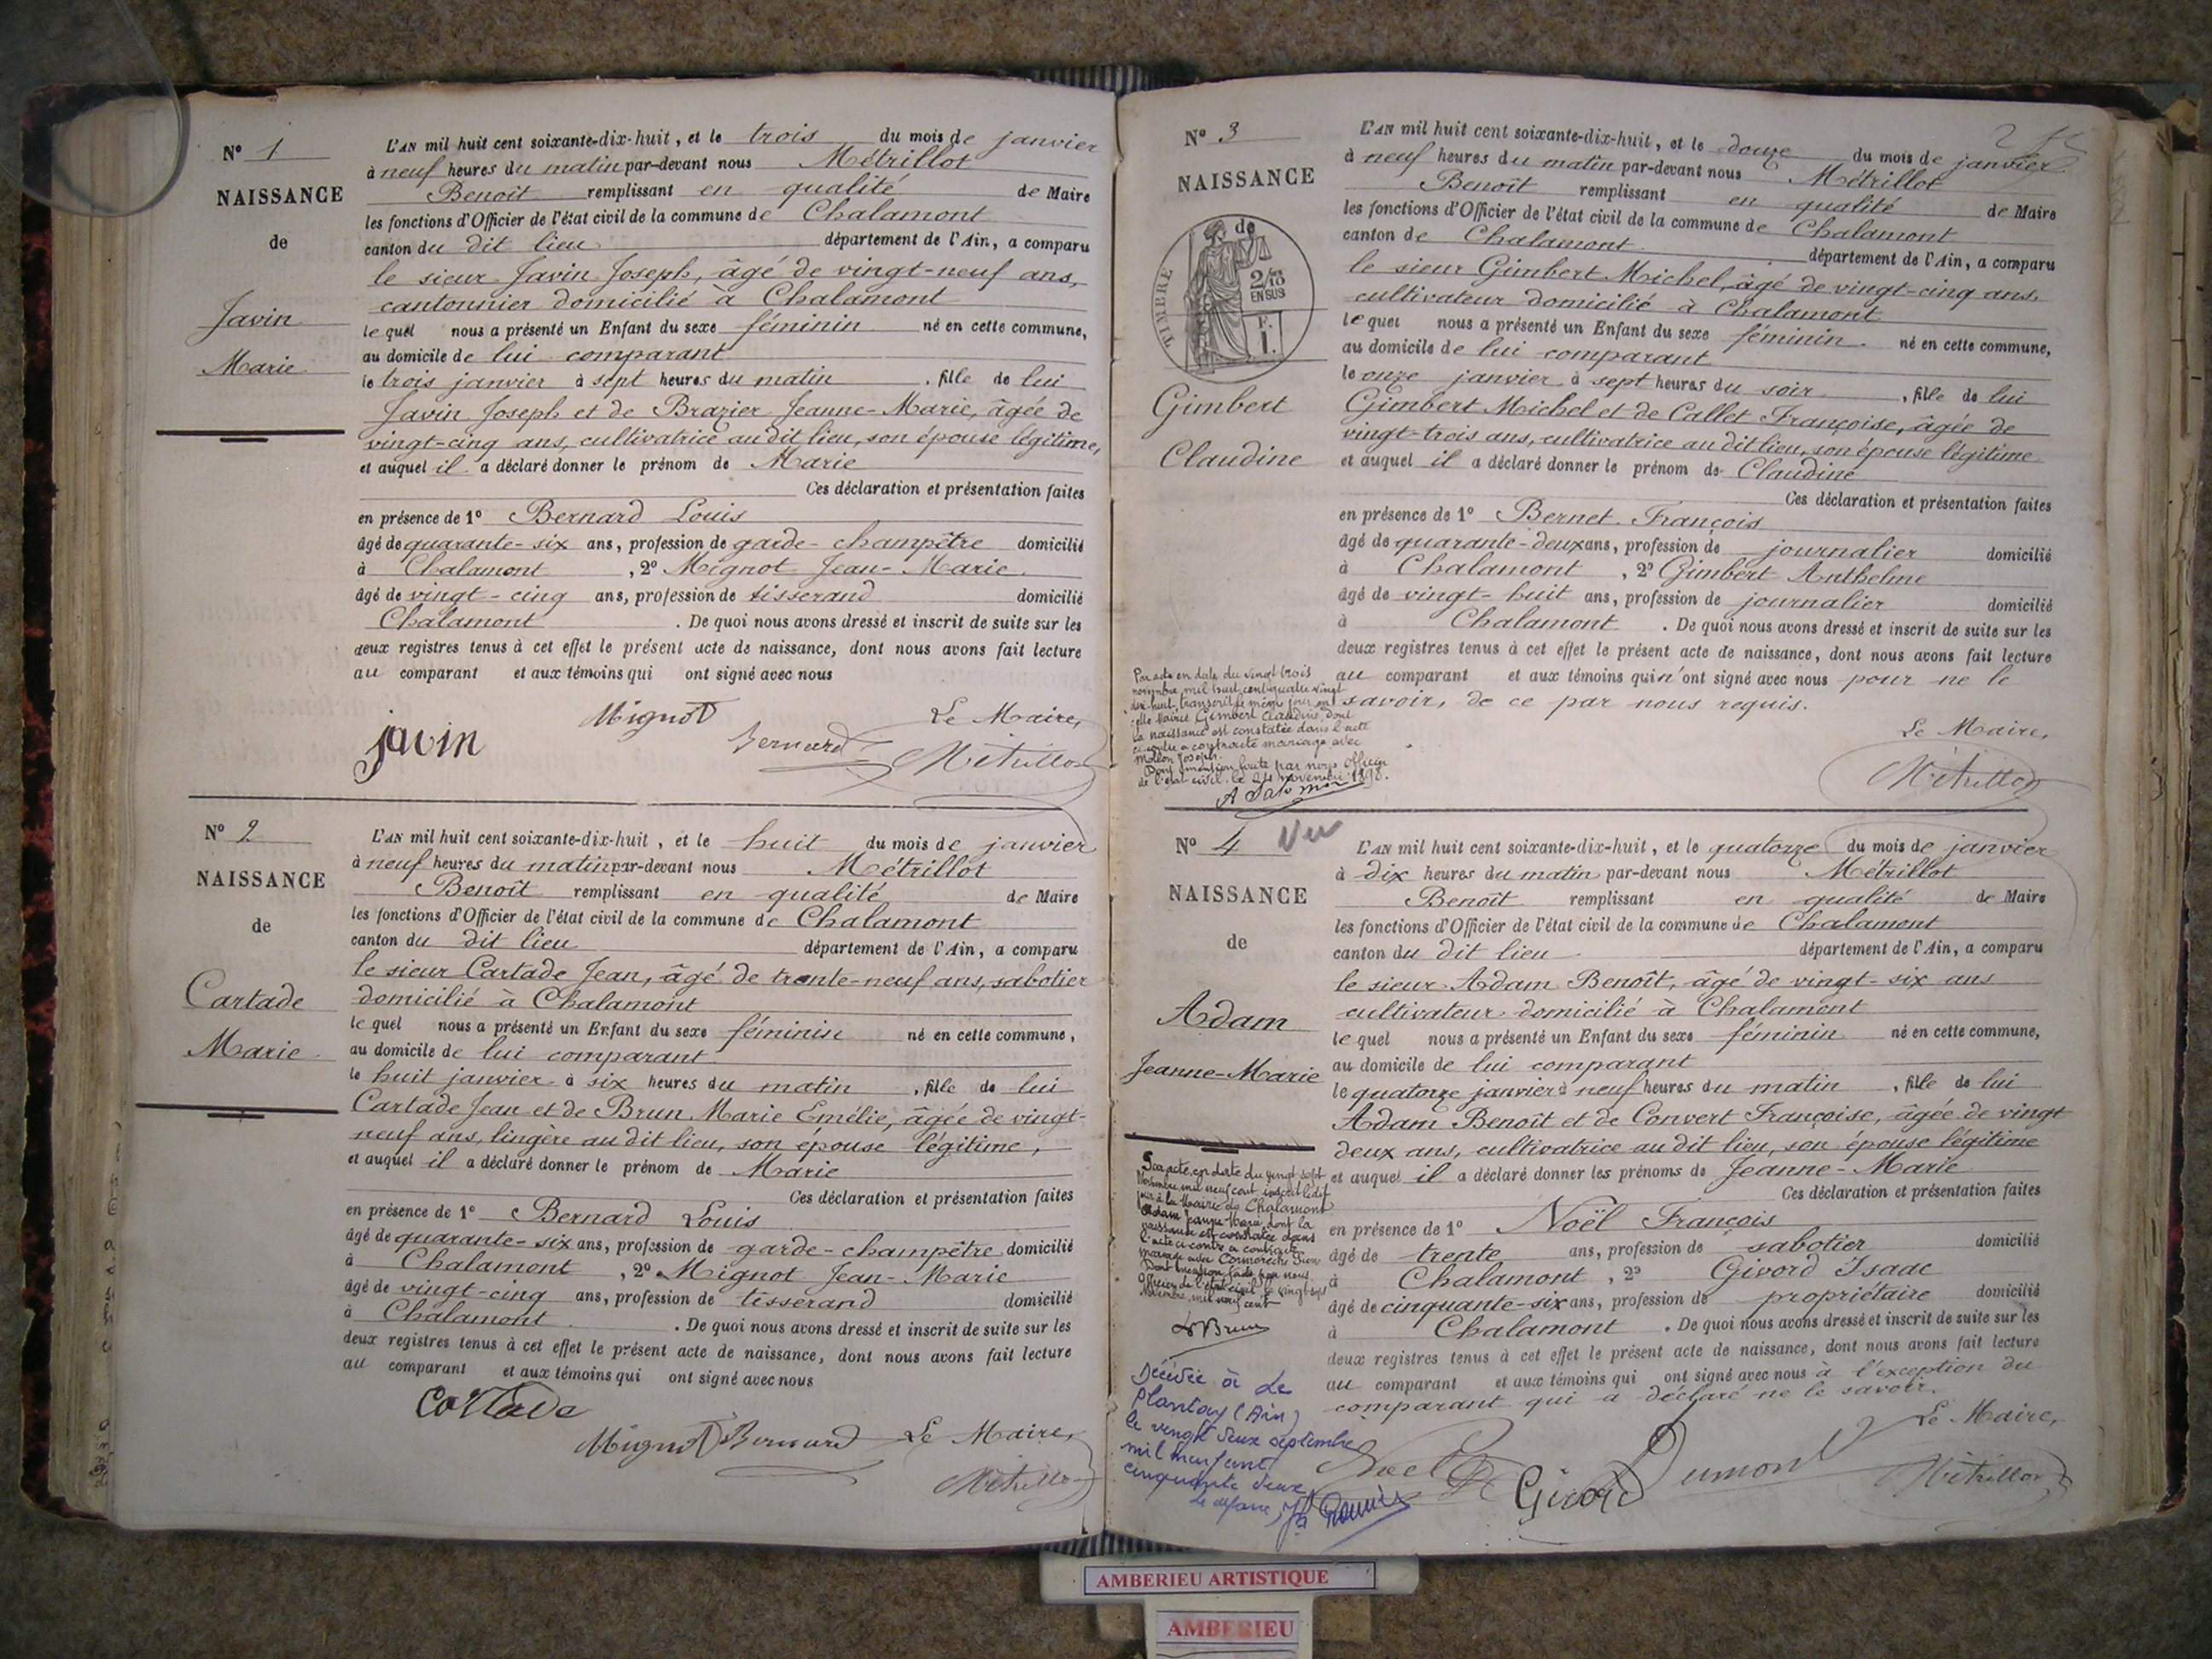 N° 1
NAISSANCE
de
Javin
Marie
L'AN mil huit cent soixante-dix-huit, et le trois du mois de janvier
à neuf heures du matin par-devant nous Métrillot
Benoît remplissant en qualité de Maire
les fonctions d'Officier de l'état civil de la commune de Chalamont
canton du dit lieu département de l'Ain, a comparu
le sieur Javin Joseph, âgé de vingt-neuf ans,
cantonnier domicilié à Chalamont
lequel nous a présenté un Enfant du sexe féminin né en cette commune,
au domicile de lui comparant
le trois janvier à sept heures du matin, fille de lui
Javin Joseph et de Brazier Jeanne-Marie, âgée de
vingt-cinq ans, cultivatrice au dit lieu, son épouse légitime,
et auquel il a déclaré donner le prénom de Marie
Ces déclaration et présentation faites
en présence de 1° Bernard Louis
âgé de quarante-six ans, profession de garde-champêtre domicilié
à Chalamont, 2° Mignot Jean-Marie
âgé de vingt-cinq ans, profession de tisserand domicilié
Chalamont. De quoi nous avons dressé et inscrit de suite sur les
deux registres tenus à cet effet le présent acte de naissance, dont nous avons fait lecture
au comparant et aux témoins qui ont signé avec nous
Le Maire,
Mignot
javin
Bernard
Métrillot
N° 2
NAISSANCE
de
Cartade
Marie
L'AN mil huit cent soixante-dix-huit, et le huit du mois de janvier
à neuf heures du matin par-devant nous Métrillot
Benoît remplissant en qualité de Maire
les fonctions d'Officier de l'état civil de la commune de Chalamont
canton du dit lieu département de l'Ain, a comparu
le sieur Cartade Jean, âgé de trente-neuf ans, sabotier
domicilié à Chalamont
lequel nous a présenté un Enfant du sexe féminin né en cette commune,
au domicile de lui comparant
le huit janvier à six heures du matin, fille de lui
Cartade Jean et de Brun Marie Emélie, âgée de vingt-
neuf ans, lingère au dit lieu, son épouse légitime,
et auquel il a déclaré donner le prénom de Marie
Ces déclaration et présentation faites
en présence de 1° Bernard Louis
âgé de quarante-six ans, profession de garde-champêtre domicilié
à Chalamont, 2° Mignot Jean-Marie
âgé de vingt-cinq ans, profession de tisserand domicilié
à Chalamont. De quoi nous avons dressé et inscrit de suite sur les
deux registres tenus à cet effet le présent acte de naissance, dont nous avons fait lecture
au comparant et aux témoins qui ont signé avec nous
Cartade
Mignot Bernard Le Maire,
Métrillot
N° 3
NAISSANCE
de
TIMBRE
2/10
EN SUS
F.
1.
Gimbert
Claudine
L'AN mil huit cent soixante-dix-huit, et le douze du mois de janvier
à neuf heures du matin par-devant nous Métrillot
Benoît remplissant en qualité de Maire
les fonctions d'Officier de l'état civil de la commune de Chalamont
canton de Chalamont département de l'Ain, a comparu
le sieur Gimbert Michel, âgé de vingt-cinq ans,
cultivateur domicilié à Chalamont
lequel nous a présenté un Enfant du sexe féminin né en cette commune,
au domicile de lui comparant
le onze janvier à sept heures du soir, fille de lui
Gimbert Michel et de Callet Françoise, âgée de
vingt-trois ans, cultivatrice au dit lieu, son épouse légitime
et auquel il a déclaré donner le prénom de Claudine
Ces déclaration et présentation faites
en présence de 1° Bernet François
âgé de quarante-deux ans, profession de journalier domicilié
à Chalamont, 2° Gimbert Anthelme
âgé de vingt-huit ans, profession de journalier domicilié
à Chalamont. De quoi nous avons dressé et inscrit de suite sur les
deux registres tenus à cet effet le présent acte de naissance, dont nous avons fait lecture
au comparant et aux témoins qui n'ont signé avec nous pour ne le
savoir, de ce par nous requis.
Le Maire,
Métrillot
Par acte en date du vingt trois
novembre mil huit cent quatre vingt
dix-huit, transcrit le même jour en
cette Mairie Gimbert Claudine, dont
la naissance est constatée dans l'acte
ci-contre a contracté mariage avec
Joseph.
Dont mention faite par nous officier
de l'état civil le 24 novembre 1898.
N° 4 Vu
NAISSANCE
de
Adam
Jeanne-Marie
L'AN mil huit cent soixante-dix-huit, et le quatorze du mois de janvier
à dix heures du matin par-devant nous Métrillot
Benoît remplissant en qualité de Maire
les fonctions d'Officier de l'état civil de la commune de Chalamont
canton du dit lieu département de l'Ain, a comparu
le sieur Adam Benoît, âgé de vingt-six ans
cultivateur domicilié à Chalamont
lequel nous a présenté un Enfant du sexe féminin né en cette commune,
au domicile de lui comparant
le quatorze janvier à neuf heures du matin, fille de lui
Adam Benoît et de Convert Françoise, âgée de vingt
deux ans, cultivatrice au dit lieu, son épouse légitime
et auquel il a déclaré donner les prénoms de Jeanne-Marie
Ces déclaration et présentation faites
en présence de 1° Noël François
âgé de trente ans, profession de sabotier domicilié
à Chalamont, 2° Givord Isaac
âgé de cinquante-six ans, profession de propriétaire domicilié
à Chalamont. De quoi nous avons dressé et inscrit de suite sur les
deux registres tenus à cet effet le présent acte de naissance, dont nous avons fait lecture
au comparant et aux témoins qui ont signé avec nous à l'exception du
comparant qui a déclaré ne le savoir.
Le Maire,
Noël Givord Dumont Métrillot
Par acte en date du vingt sept
Novembre mil neuf cent inscrit ledit
jour à la Mairie de Chalamont
Adam Jeanne Marie dont la
naissance est constatée dans
l'acte ci contre a contracté
mariage avec
Dont mention faite par nous
Officier de l'état civil le vingt-sept
Novembre mil neuf cent
Brun
Décédée à Le
Plantay (Ain)
le vingt deux septembre
mil neuf cent
cinquante deux
AMBERIEU ARTISTIQUE
AMBERIEU